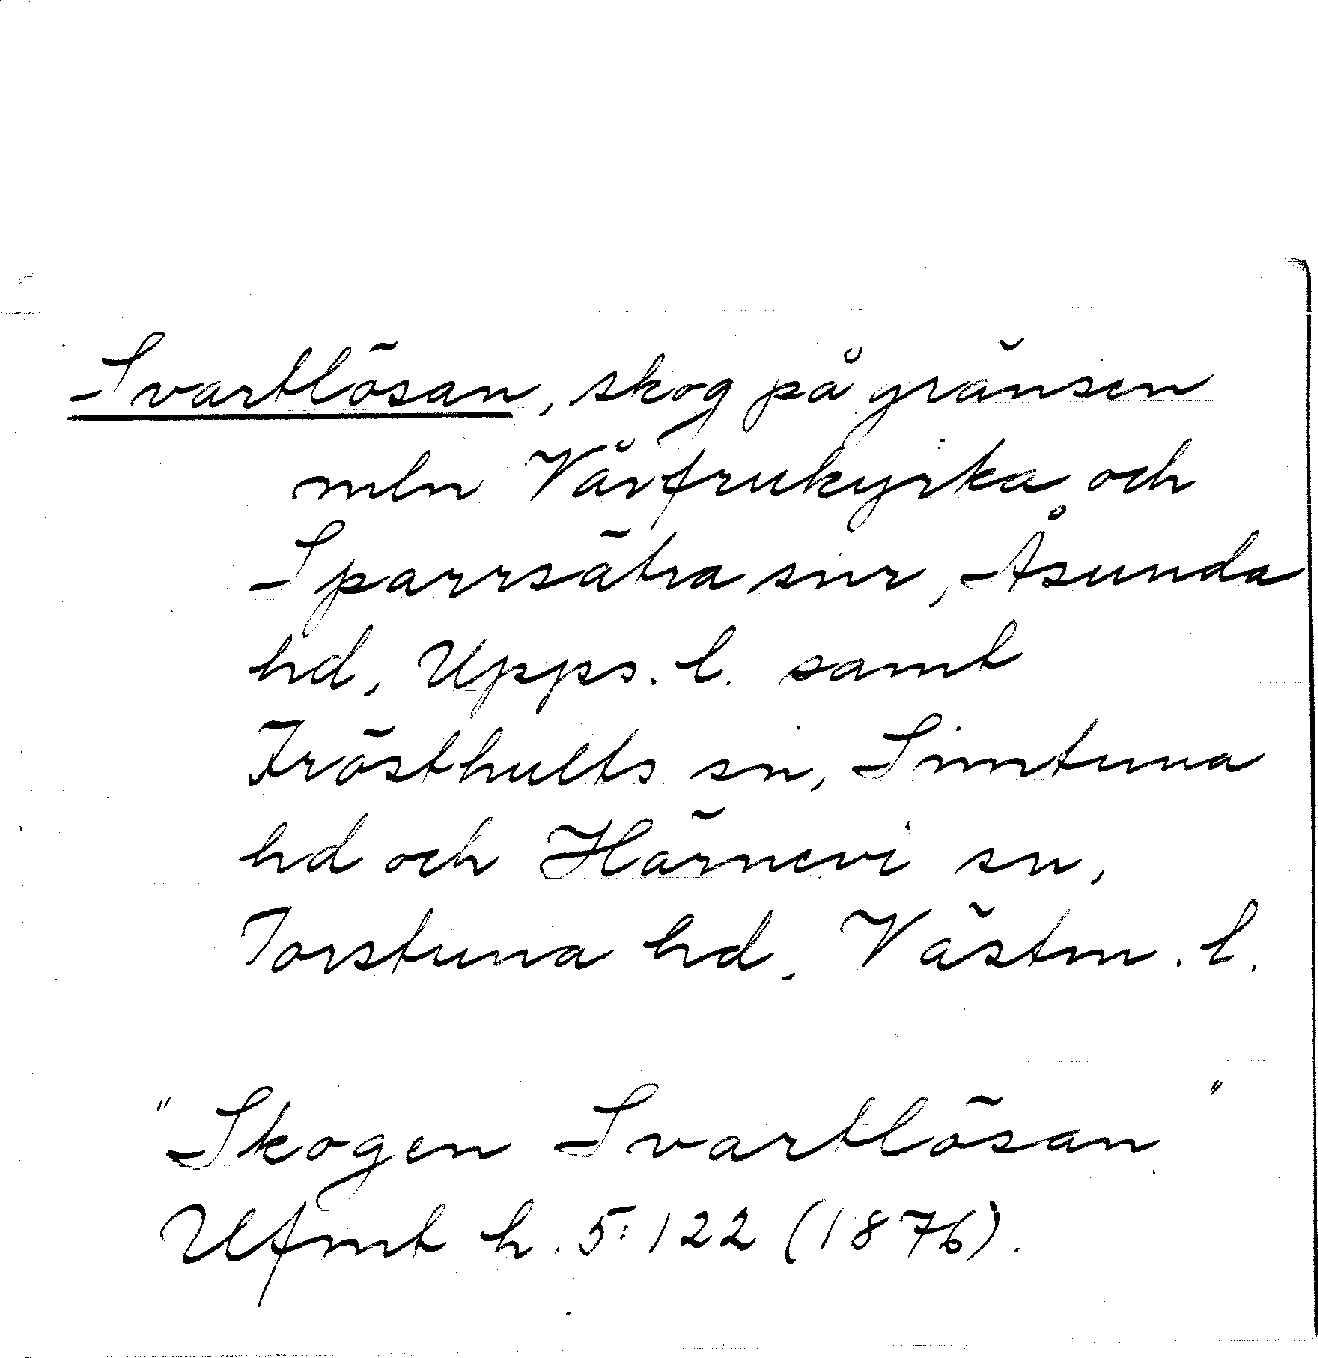 Svartlösan, skog på gränsen
mln Vårfrukyrka och
Sparrsätra snr, Åsunda
hd, Upps. l. samt
Frösthults sn, Simtuna
hd och Härnevi sn,
Torstuna hd. Västm. l.
"Skogen Svartlösan"
Ufmt h. 5:122 (1876).